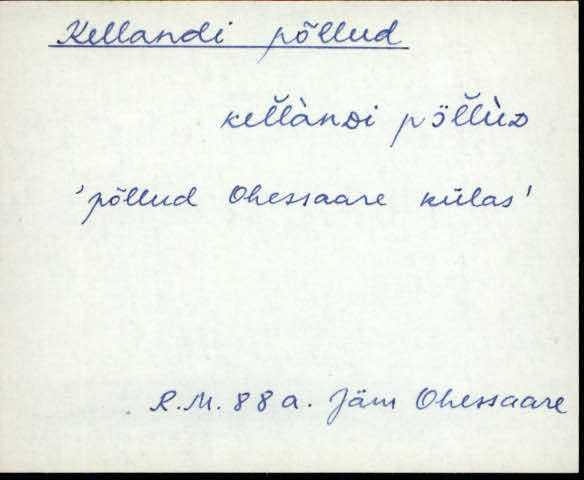 Kellandi põllud
kell̆ànᴅi pöl̆l̆ùᴅ
'põllud Ohessaare külas'
R.M. 88 a. Jäm Ohessaare